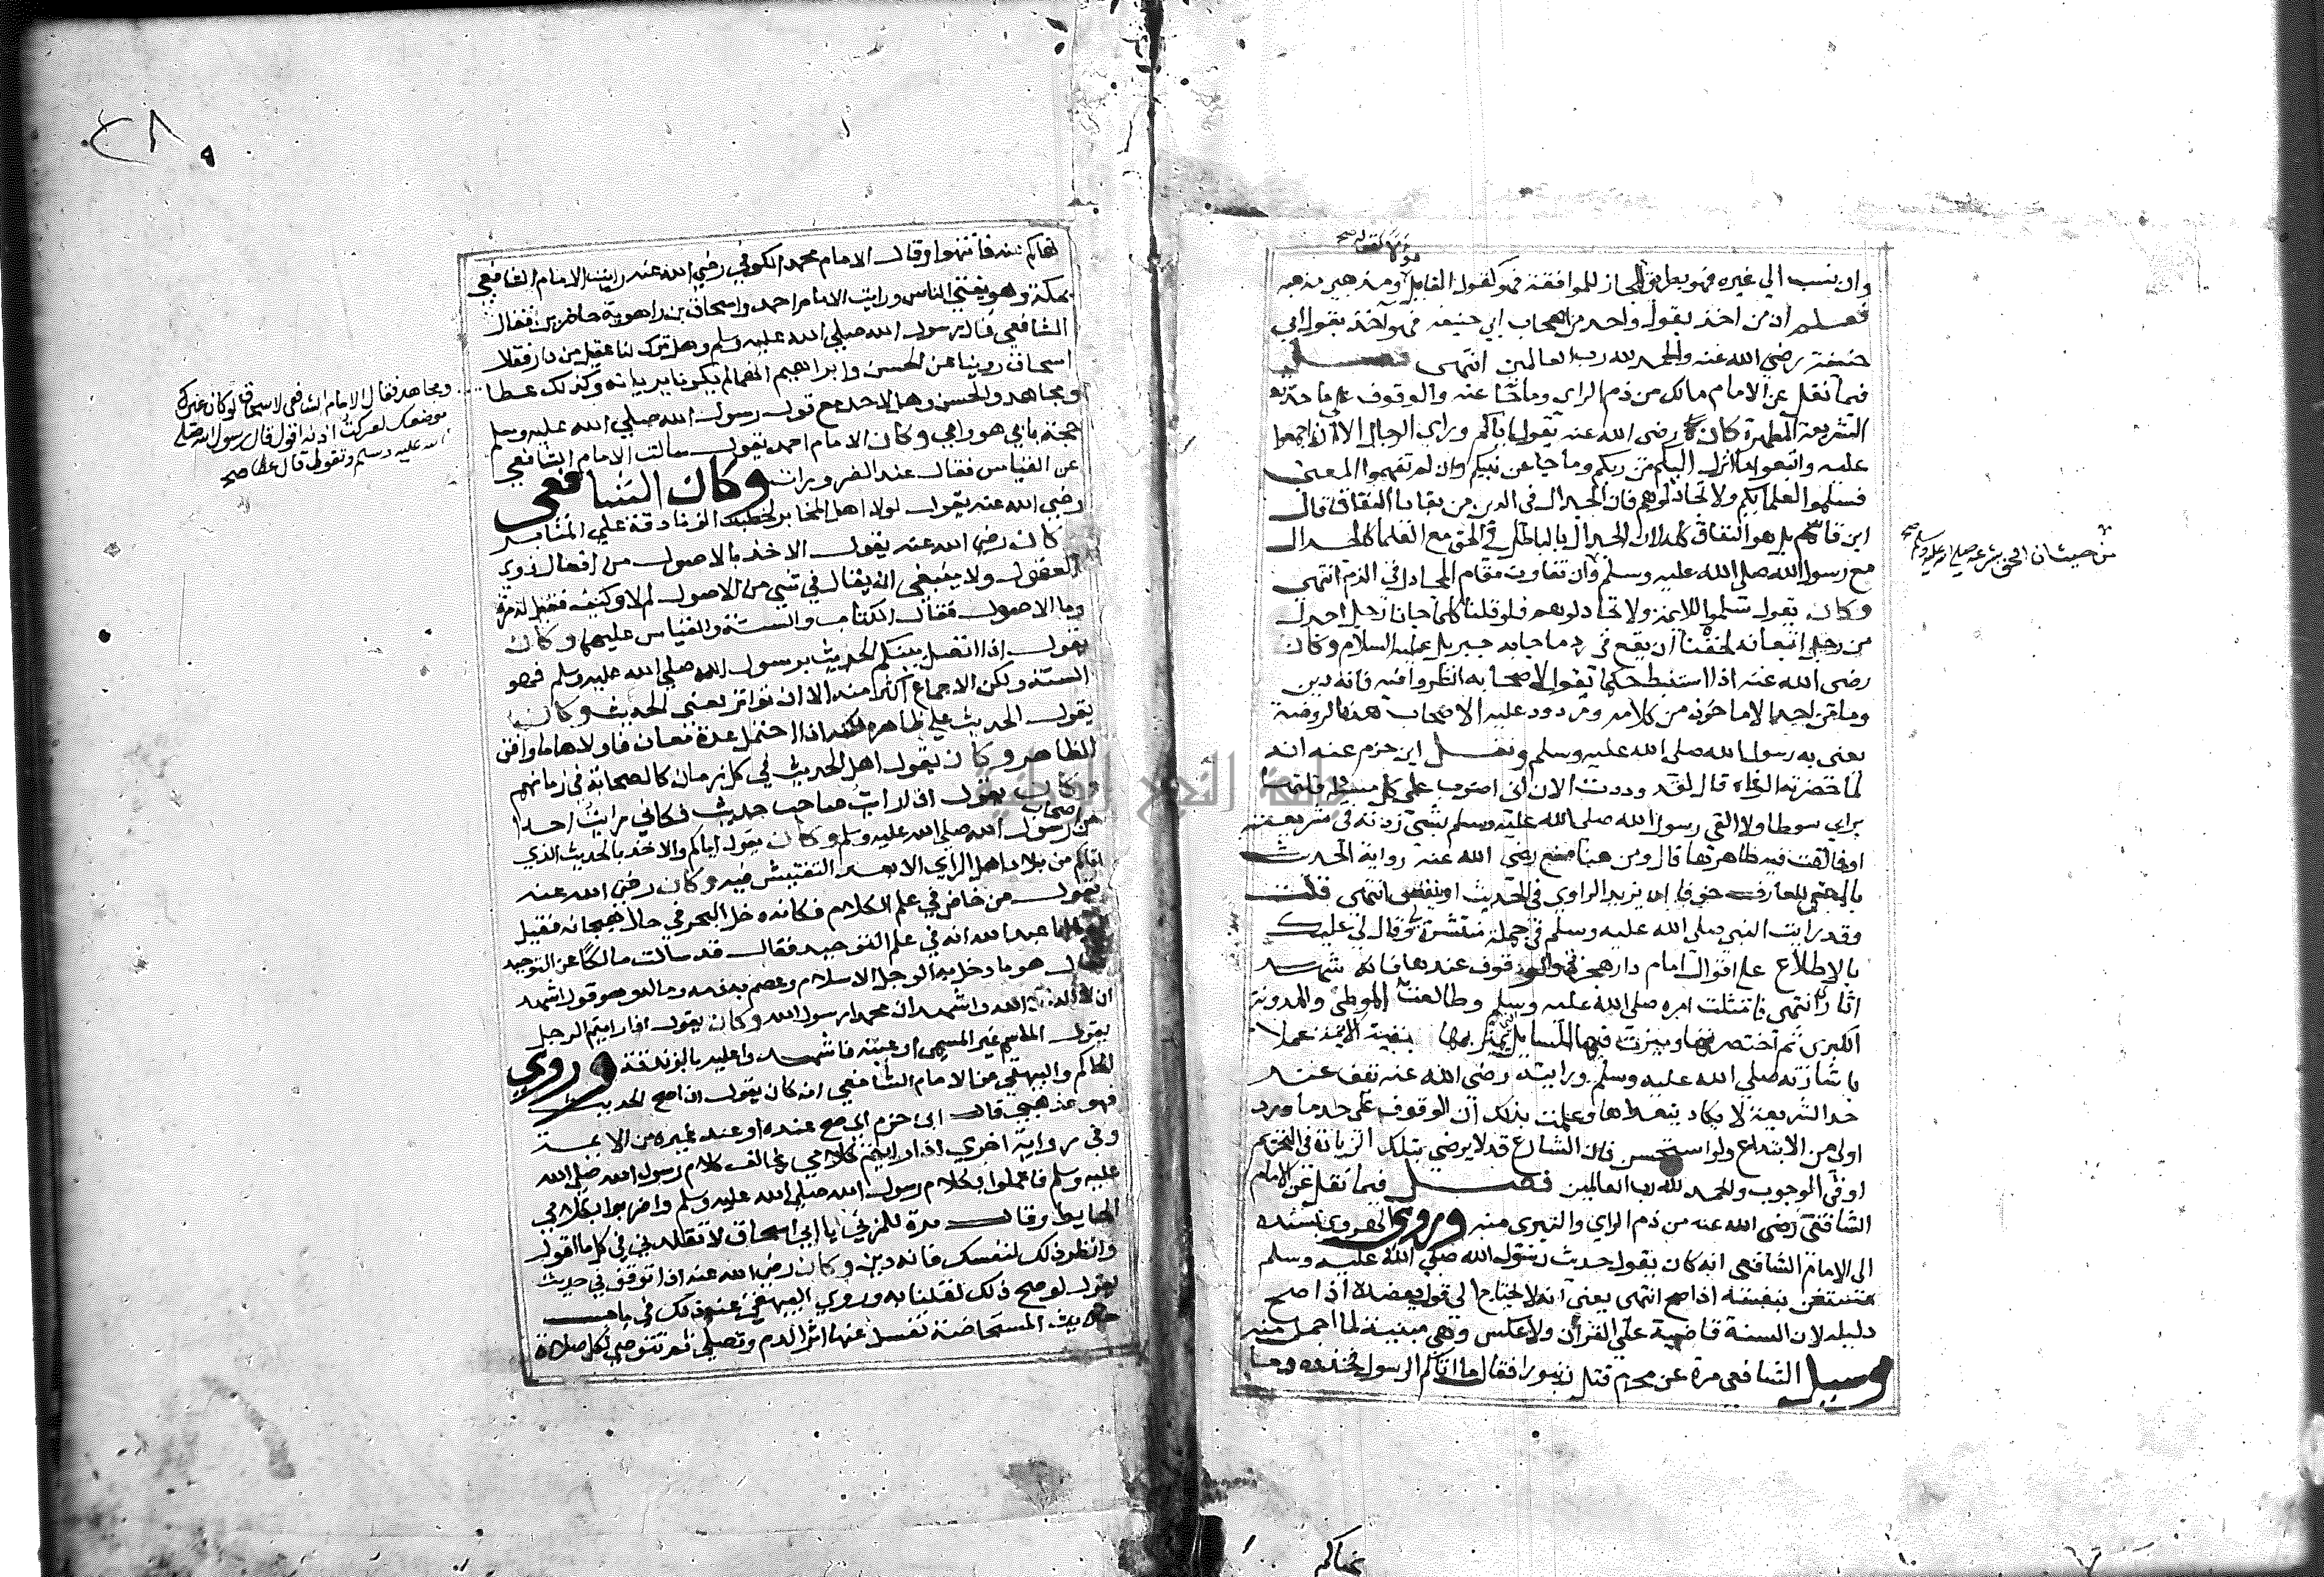 وان نسب الي غيره فهو بطريق المجاز للموافقة فهو كقول القايل ومذهبي مذهبه
فعلم ان من اخذ بقول واحد من اصحاب ابي حنيفه فهو آخذ بقول ابي
حنيفة رضي الله عنه والحمد لله رب العالمين انتهى فصل
فيما نقل عن الامام مالك من ذم الراي وما جا عنه والوقوف على ما حدته
الشريعة المطهرة كان رضي الله عنه يقول اياكم وراي الرجال الا ان اجمعوا
عليه واتبعوا ما انزل اليكم من ربكم وما جا عن نبيكم وان لم تفهموا المعنى
فسلموا لعلمايكم ولا تجادلوهم فان الجدال في الدين من بقايا النفاق قال
ابن قاسم بل هو النفاق كله لان الجدال بالباطل في الحق مع العلما كالجدال
مع رسول الله صلى الله عليه وسلم وان تفاوت مقام المجادل في الذم انتهى
من حيث ان الحق شرعه صلى الله عليه وسلم صح
وكان يقول سلموا للايمة ولا تجادلوهم فلو قلنا كلما جانا رجل اجدل
من رجل اتبعناه لخفنا ان يقع في رد ما جا به جبريل عليه السلام وكان
رضي الله عنه اذا استنبط حكما يقول لاصحابه انظروا فيه فانه دين
وما من احد الا ماخوذ من كلامه ومردود عليه الا صاحب هذه الروضة
يعنى به رسول الله صلى الله عليه وسلم ونقل ابن حزم عنه انه
لما حضرته الوفاة قال لقد وددت الان اني اضرب على كل مسئلة قلتها
براي سوطا ولا القى رسول الله صلى الله عليه وسلم بشي زدته في شريعته
او خالفت فيه ظاهرها قال ومن هنا منع رضي الله عنه رواية الحديث
بالمعنى للعارف خوفا ان يزيد الراوي في الحديث او ينقص انتهى قلت
وقد رايت النبي صلى الله عليه وسلم في جملة مبشرة لي وقال لي عليك
بالاطلاع على اقوال امام دار هجرتي والوقوف عندها فانه شهد
اثاري انتهى فامتثلت امره صلى الله عليه وسلم وطالعت الموطئ والمدونة
الكبرى ثم اختصرتها وميزت فيها المسايل التي تميز بها عن بقية الايمة عملا
باشارته صلى الله عليه وسلم ورايته رضي الله عنه يقف عند
حد الشريعة لا يكاد يتعداها وعلمت بذلك ان الوقوف على حد ما ورد
اولى من الابتداع ولو استحسن فان الشارع قد لا يرضى بتلك الزيادة في التحريم
او في الوجوب والحمد لله رب العالمين فصل فيما نقل عن الامام
الشافعي رضي الله عنه من ذم الراي والتبري منه وروى الهروي بسنده
الى الامام الشافعي انه كان يقول حديث رسول الله صلى الله عليه وسلم
مستغن بنفسه اذا صح انتهى يعني انه لا يحتاج الى قول يعضده اذا صح
دليله لان السنة قاضية على القرآن ولا عكس وهي مبينة لما اجمل منه
وسيل الشافعي مرة عن محرم قتل زنبورا فقال ما اتاكم الرسول فخذوه وما
نهاكم
نهاكم عنه فانتهوا وقال الامام محمد الكوفي رضي الله عنه رايت الامام الشافعي
بمكة وهو يفتي الناس ورايت الامام احمد واسحاق بن راهوية حاضرين فقال
الشافعي قال رسول الله صلى الله عليه وسلم وهل ترك لنا عقيل من دار فقال
اسحاق روينا عن الحسن وابراهيم انهما لم يكونا يريانه وكذلك عطا
ومجاهد فقال الامام الشافعي لاسحاق لو كان غيرك
موضعك لعركت اذنه اقول قال رسول الله صلى
الله عليه وسلم وتقول قال عطا صح
ومجاهد والحسن وهل لاحد مع قول رسول الله صلى الله عليه وسلم
حجة بابي هو وامي وكان الامام احمد يقول سالت الامام الشافعي
عن القياس فقال عند الضرورات وكان الشافعي
رضي الله عنه يقول لولا اهل المحابر لخطبت الزنادقة على المنابر
كان رضي الله عنه يقول الاخذ بالاصول من افعال ذوي
العقول ولا ينبغي ان يقال في شي من الاصول لم ولا وكيف فقيل له مرة
وما الاصول فقال الكتاب والسنة والقياس عليهما وكان
يقول اذا اتصل بينكم الحديث برسول الله صلى الله عليه وسلم فهو
السنة ولكن الاجماع اكثر منه الا ان تواتر يعني الحديث وكان
يقول الحديث على ظاهره لكنه اذا احتمل عدة معان فاولاها ما وافق
الظاهر وكان يقول اهل الحديث في كل زمان كالصحابة في زمانهم
وكان يقول اذا رايت صاحب حديث فكاني رايت احدا
من اصحاب رسول الله صلى الله عليه وسلم وكان يقول اياكم والاخذ بالحديث الذي
اتاكم من بلاد اهل الراي الا بعد التفتيش فيه وكان رضي الله عنه
يقول من خاض في علم الكلام فكانه دخل البحر في حال هيجانه فقيل
يا ابا عبد الله انه في علم التوحيد فقال قد سالت مالكا عن التوحيد
فقال هو ما دخل به الرجل الاسلام وعصم به دمه وماله وهو قول اشهد
ان لا اله الا الله واشهد ان محمدا رسول الله وكان يقول اذا رايتم الرجل
يقول الاسم غير المسمى او عينه فاشهدوا عليه بالزندقة وروي
الحاكم والبيهقي عن الامام الشافعي انه كان يقول اذا صح الحديث
فهو مذهبي قال ابن حزم اي صح عنده او عند غيره من الايمة
وفي رواية اخري اذا رايتم كلامي يخالف كلام رسول الله صلى الله
عليه وسلم فاعملوا بكلام رسول الله صلى الله عليه وسلم واضربوا بكلامي
الحايط وقال مرة للمزني يا ابي اسحاق لا تقلدني في كل ما اقول
وانظر ذلك لنفسك فانه دين وكان رضي الله عنه اذا توقف في حديث
يقول لو صح ذلك لقلنا به وروي البيهقي عنه ذلك في باب
حديث المستحاضة تغسل عنها اثر الدم وتصلي ثم تتوضي لكل صلاة